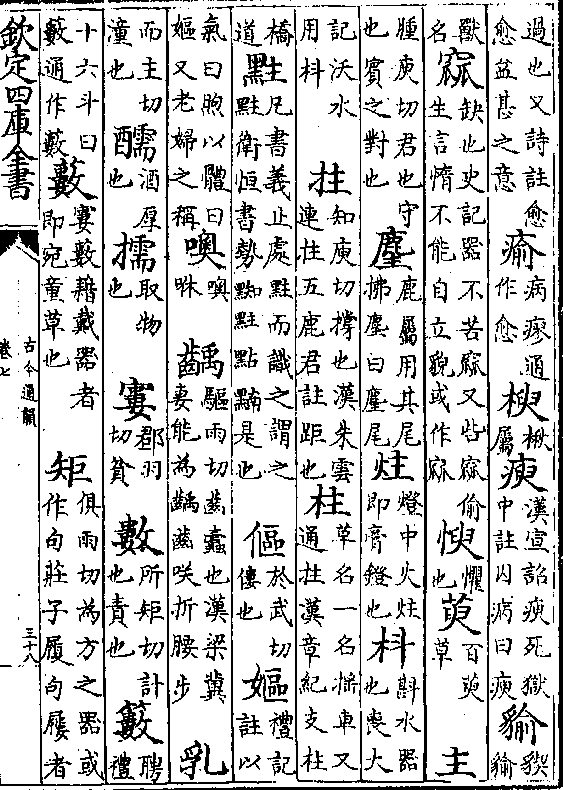 過也又詩註愈愈益甚之意瘉病瘳通作愈楰楸屬瘐漢宣詔瘐死獄中註囚病曰瘐貐䝟貐
獸名窳缺也史記器不苦窳又呰窳偷生言惰不能自立貌或作㼌㥚懼也萸百萸草主
腫庾切君也守也賓之對也麈鹿屬用其尾拂塵曰麈尾炷燈中火炷即膏鐙也枓斟水器也喪大
記沃水用枓拄知庾切撐也漢朱雲連拄五鹿君註距也柱草名一名搖車又通拄漢章紀支柱
橋道𪐴凡書義止處𪐴而識之謂之𪐴衛恒書勢𪐴點是也傴於武切僂也嫗禮記註以
氣曰煦以體曰嫗又老婦之稱噢噢咻齲驅雨切齒蠹也漢梁冀妻能為齲齒咲折腰步乳
而主切湩也醹酒厚也擩取物也窶郡羽切貧數所矩切計也責也籔聘禮
十六斗曰籔通作藪藪窶藪藉戴器者即宛童草也矩俱雨切為方之器或作句莊子履句屨者
欽定四庫全書
古今通韻
卷七
三十八